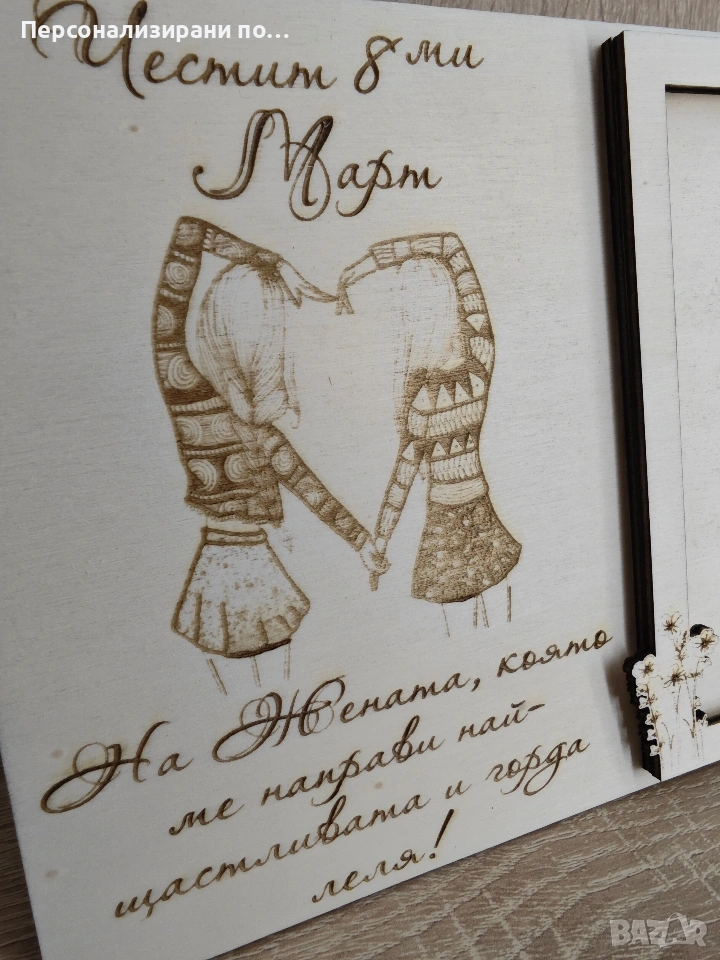 Персонализирани по...
Честит 8ми
Март
На Жената, която
ме направи най-
щастливата и горда
леля!
BAZAR